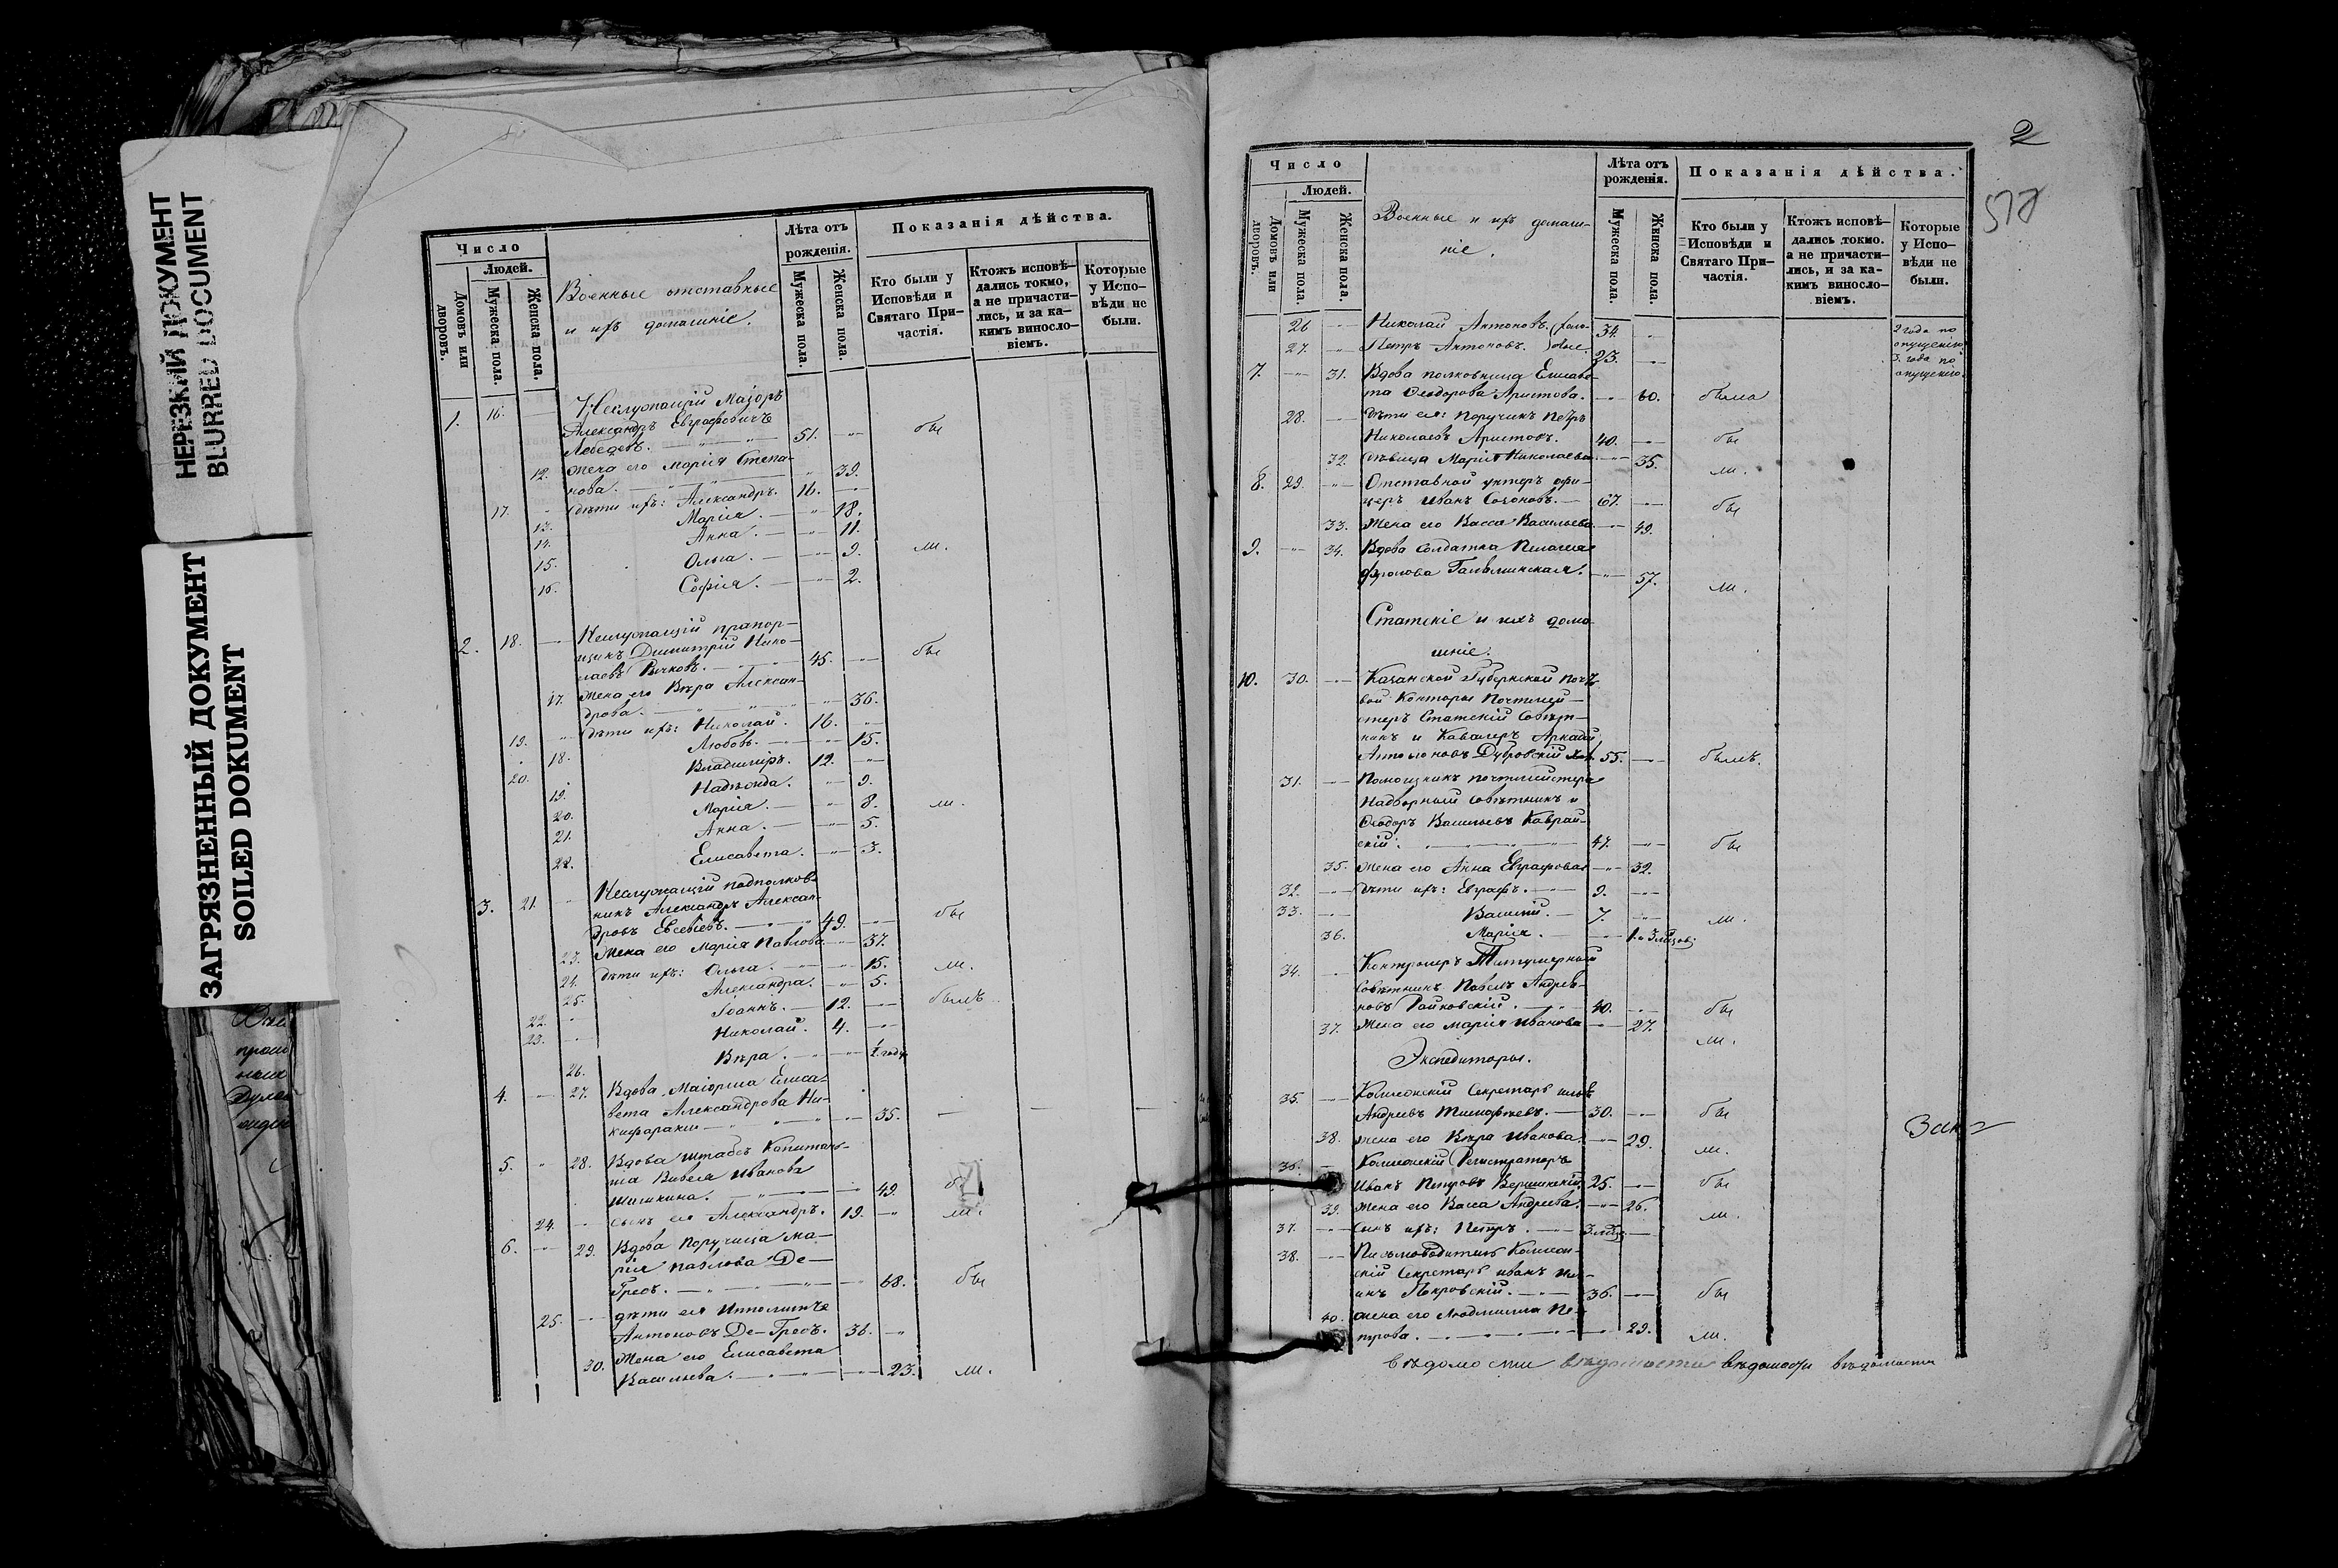 НЕРЕЗКИЙ ДОКУМЕНТ
BLURRED DOCUMENT
ЗАГРЯЗНЕННЫЙ ДОКУМЕНТ
SOILED DOKUMENT
Число
Людей.
Домовъ или дворовъ.
Мужеска пола.
Женска пола.
Военные отставные
и ихъ домашніе.
Лѣта отъ
рожденія.
Мужеска пола.
Женска пола.
Показанія дѣйства.
Кто были у
Исповѣди и
Святаго При-
частія.
Ктожъ исповѣ-
дались токмо,
а не причасти-
лись, и за ка-
кимъ виносло-
віемъ.
Которые
у Испо-
вѣди не
были.
1. 16. Неслужащій Маіоръ
Александръ Евграфовичъ
Лебедевъ. 51. бы
12. Жена его Марія Степа-
нова. 39.
17. дѣти ихъ: Александръ. 16.
13. Марія. 18.
14. Анна. 11.
15. Ольга. 9. ли.
16. Софія. 2.
2. 18. Неслужащій прапор-
щикъ Димитрій Нико-
лаевъ 45. бы
17. Жена его Вѣра Алексан-
дрова. 36.
19. дѣти ихъ: Николай. 16.
18. Любовь. 15.
20. Владиміръ. 12.
19. Надежда. 9.
20. Марія. 8. ли.
21. Анна. 5.
22. Елисавета. 3.
3. 21. Неслужащій подполков-
никъ Александръ Алексан-
дровъ Евсевіевъ. 49. бы
23. Жена его Марія Павлова 37.
24. дѣти ихъ: Ольга. 15. ли.
25. Александра. 5.
22. Іоаннъ. 12. былъ
23. Николай. 4.
26. Вѣра.
4. 27. Вдова Маіорша Елиса-
вета Александрова Ни-
35.
5. 28. Вдова штабсъ Капитан-
ша Ивановa
Шишкина. 49.
24. сынъ ея Александръ. 19. ли.
6. 29. Вдова Поручица Ма-
рія Павлова Де-
68. бы
25. дѣти ея Ипполитъ
Антоновъ 36.
30. Жена его Елисавета
Васильева. 23. ли.
2
Число
Людей.
Домовъ или дворовъ.
Мужеска пола.
Женска пола.
Военные и ихъ домаш-
ніе.
Лѣта отъ
рожденія.
Мужеска пола.
Женска пола.
Показанія дѣйства.
Кто были у
Исповѣди и
Святаго При-
частія.
Ктожъ исповѣ-
дались токмо.
а не причасти-
лись, и за ка-
кимъ виносло-
віемъ.
Которые
у Испо-
вѣди не
были.
26 Николай Антоновъ. 34. 2 года по
опущенію
27. Петръ Антоновъ. 23. 3. года по
опущенію.
7. 31. Вдова полковница Елисаве-
та Ѳеодорова Аристова. 60. была
28. дѣти ея: Поручикъ Петръ
Николаевъ Аристовъ. 40. бы
32. дѣвица Марія Николаева 35. ли.
8. 29. Отставной унтеръ офи-
церъ Иванъ 67. бы
33. Жена его Васса Васильева 49.
9. 34. Вдова Солдатка Пелагея
Фролова 57. ли.
Статскіе и ихъ дома
шніе.
10. 30. Казанской Губернской Поч-
вой Конторы Почтмей-
стеръ Статскій Совѣт-
никъ и Кавалеръ Аркадій
Дубровскій 55. былъ.
31. Помощникъ почтмейстера
Надворный совѣтникъ и
Ѳеодоръ Васильевъ Каврай-
скій. 47. бы
35. Жена его Анна Евграфова 32.
32. дѣти ихъ: Евграфъ. 9.
33. Василій. 7. ли.
36. Марія.
34. Контролеръ Титулярный
Совѣтникъ Павелъ Андрее-
новъ 40. бы
37. Жена его Марія Иванова 27. ли.
Экспедиторы.
35. Коллежскій Секретарь
Андреевъ Тимофѣевъ. 30. бы
38. Жена его Вѣра Иванова. 29. ли.
36. Коллежскій Регистраторъ
Иванъ Петровъ 25. бы
39. Жена его Васса Андреева. 26. ли.
37. Сынъ ихъ: Петръ.
38. Письмоводитель Коллеж-
скій Секретарь Иванъ
Покровскій. 36. бы
40. Жена его Людмилла Пе-
трова. 29. ли.
вѣдомости вѣдомости вѣдомости вѣдомости